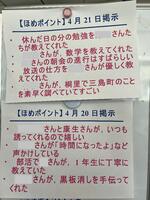 【ほめポイント】4月21日掲示
休んだ日の分の勉強を さんた
ちが教えてくれた
さんが、数学を教えてくれた
さんの朝会の進行はすばらしい
放送の仕方を さんが優しく教
えてくれた
さんが、桐里で三島町のこと
を素早く調べていてすごい
【ほめポイント】4月20日掲示
さんと康生さんが、いつも
誘ってくれるので嬉しい
さんが「時間になったよ」など
声かけしている
部活で さんが、1年生に丁寧に
教えていた
さんが、黒板消しを手伝って
くれた